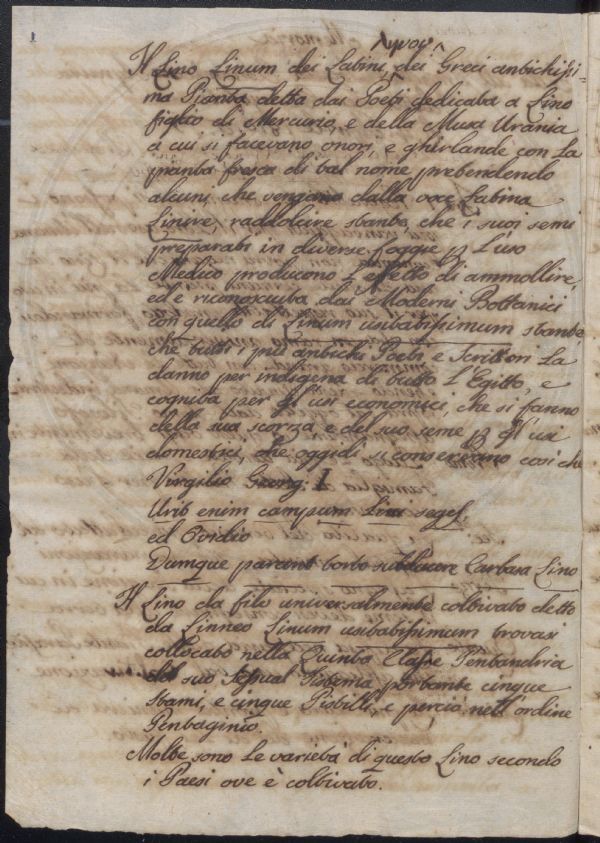 1
Λίνον
Il Lino Linum dei Latini, dei Greci antichissi-
ma Pianta detta dai Poeti dedicata a Lino
figlio di Mercurio, e della Musa Urania
a cui si facevano onori, e ghirlande con la
pianta fresca di tal nome pretendendo
alcuni, che vengano dalla voce Latina
Linire, raddolcire stante che i suoi semi
preparati in diverse foggie p l'uso
Medico producono l'effetto di ammollire,
ed è riconosciuta dai Moderni Bottanici
con quello di Linum usitatissimum stante
che tutti i più antichi Poeti, e Scrittori La
danno per indigena di tutto l'Egitto, e
cognita per gl'usi economici, che si fanno
della sua scorza e del suo seme p gl'usi
domestici, che oggidi si conservano così che
Virgilio Georg: I
Urit enim campum Lini seges,
ed Ovidio
Dumque parant torto Carbasa Lino
Il Lino da filo universalmente coltivato detto
da Linneo Linum usitatissimum trovasi
collocato nella Quinta Classe Pentandria
del suo Sistema portante cinque
stami, e cinque Pistilli, e perciò nell'ordine
Pentaginio.
Molte sono le varietà di questo Lino secondo
i Paesi ove è coltivato.